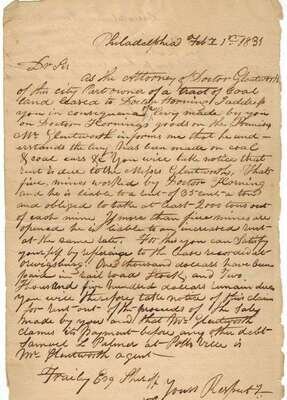 Philadelphia Feb 1st 1831
Dr Sir
As the Attorney of Doctor Glentworth
of this city Part owner of a tract of Coal
Land leased to Doctor Horning I address
you in consequence of levy made by you
on Doctor Hornings goods on the
Mr Glentworth informs me that he und-
erstands the levy has been made on coal
& coal cars &c You will take notice that
rent is due to the Messrs Glentworth, That
five mines worked by Doctor Horning
and he is liable to a rent of 35 cents a ton
and obliged to take at least 2000 tons out
of each mine If more than five mines are
opened he is liable to any increased rent
at the same rate. For this you can satisfy
yourself by reference to the lease recorded at
Orwigsburg thousand dollars have been
paid in Rail Road Stock, and Two
thousand five hundred dollars remain due
you will therefore take notice of this claim
for rent out of the proceeds of the Sale
made by you and that Mr Glentworth
claims the payment before any other debt
Samuel L Palmer at Pottsville is
Mr Glentworth agent
Fraily Esq Sheriff
Yours Respect